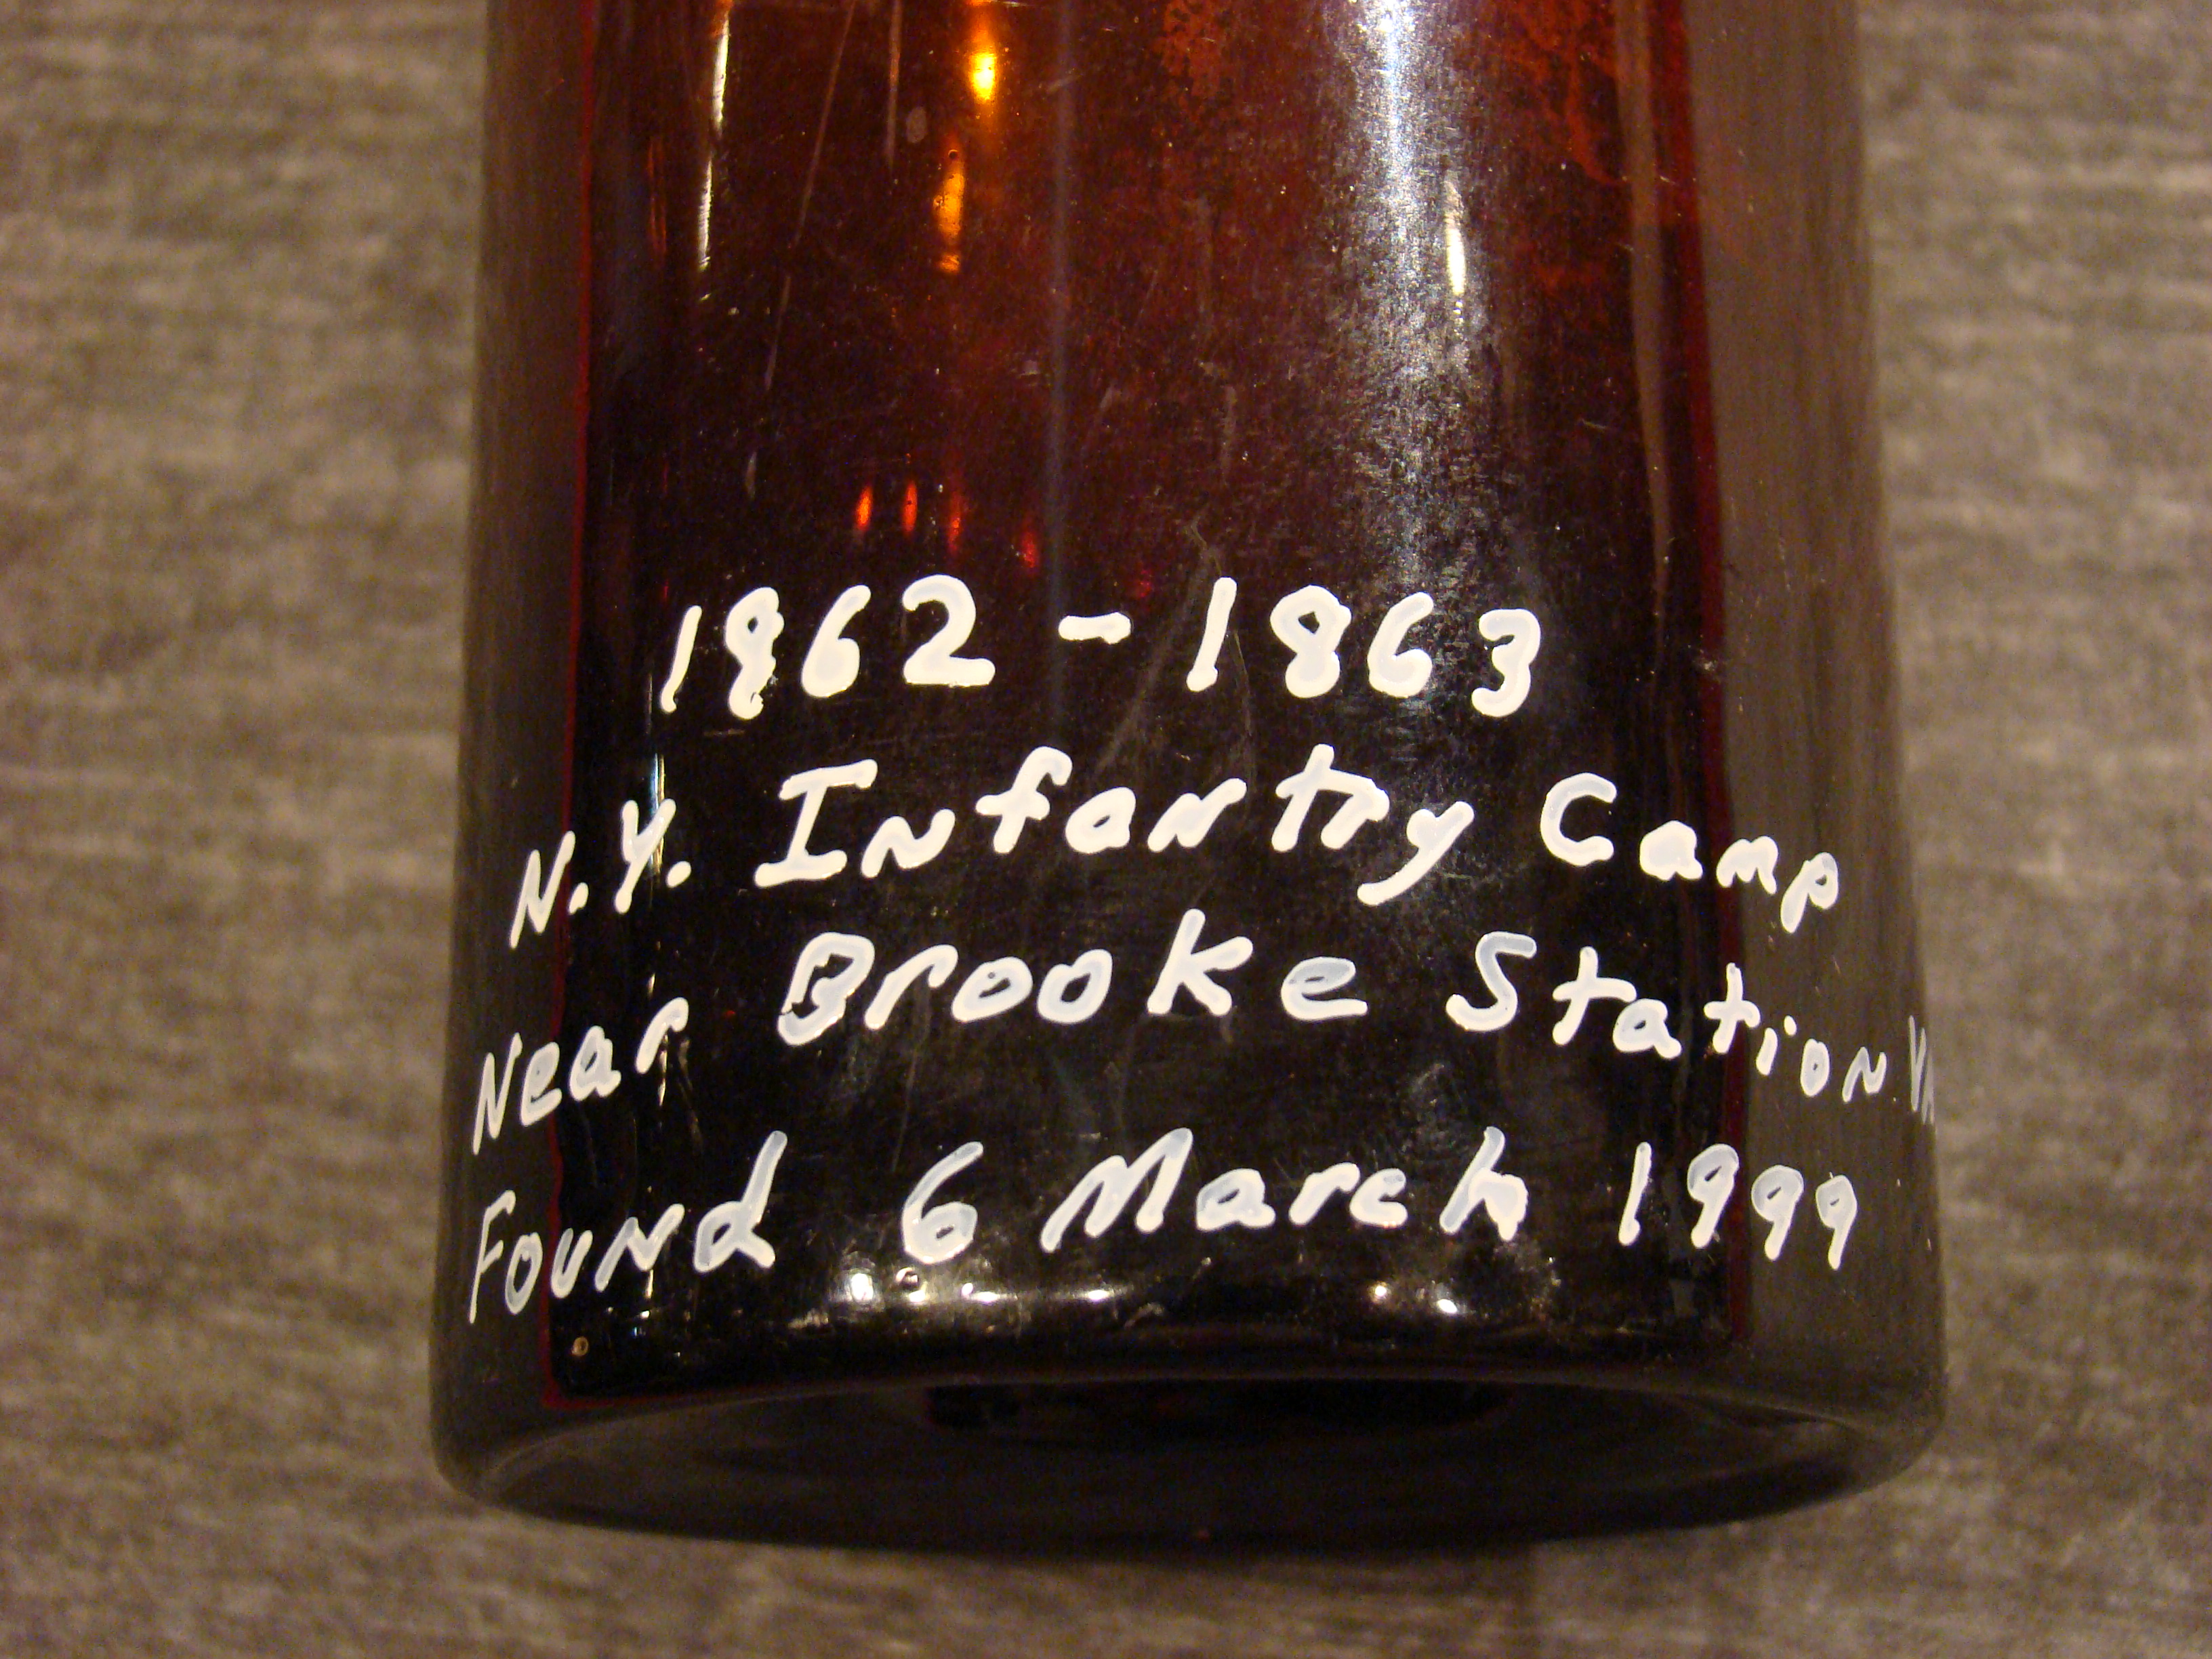 1862 - 1863
N.Y. Infantry Camp
Near Brooke Station VA
Found 6 March 1999